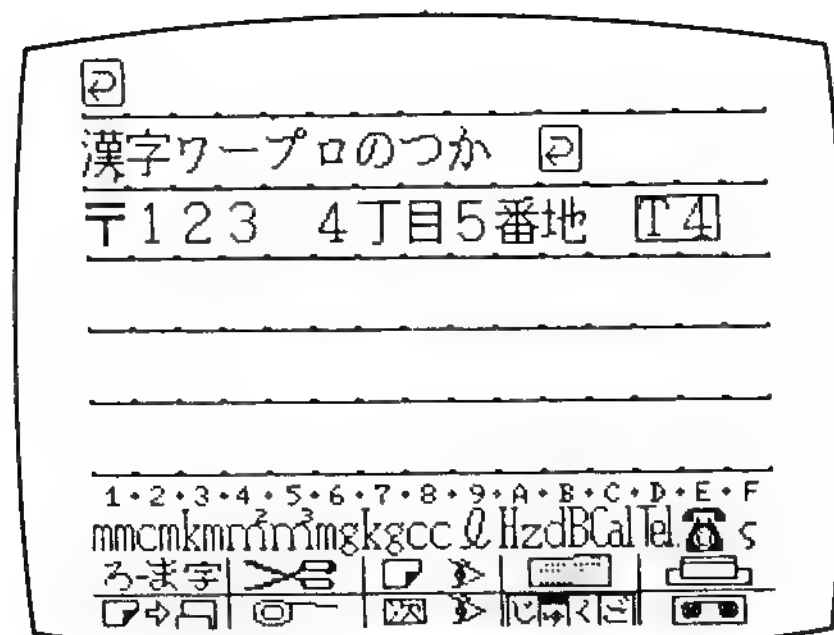 漢字ワープロのつか
〒123 4丁目5番地 T4
1・2・3・4・5・6・7・8・9・A・B・C・D・E・F
mm cm km m² m³ mg kg cc ℓ Hz dB Cal Tel. ☎ s
ろーま字
次 じゅくご